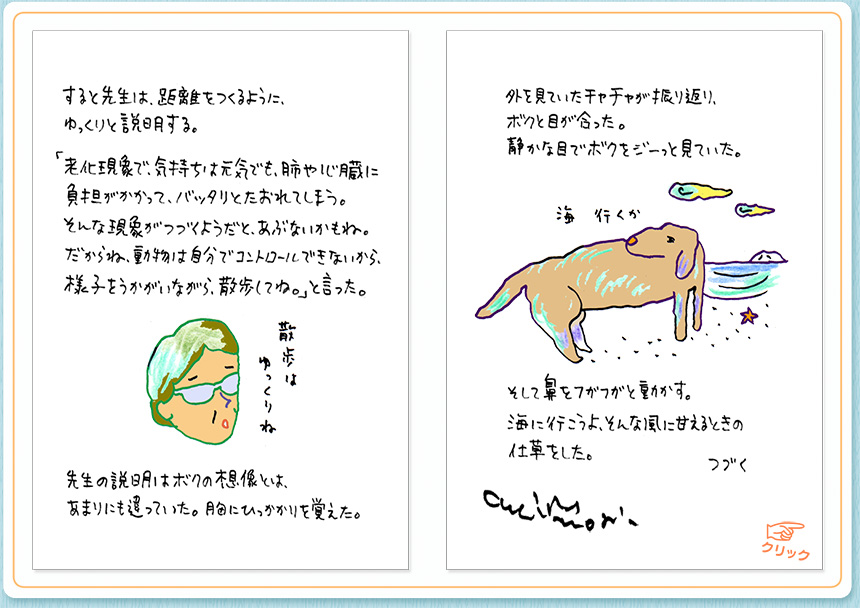 すると先生は、距離をつくるように、
ゆっくりと説明する。
「老化現象で、気持ちは元気でも、肺や心臓に
負担がかかって、バッタリとたおれてしまう。
そんな現象がつづくようだと、あぶないかもね。
だからね、動物は自分でコントロールできないから、
様子をうかがいながら、散歩してね。」と言った。
散歩は
ゆっくりね
先生の説明はボクの想像とは、
あまりにも違っていた。胸にひっかかりを覚えた。
外を見ていたチャチャが振り返り、
ボクと目が合った。
静かな目でボクをジーっと見ていた。
海 行くか
そして鼻をフガフガと動かす。
海に行こうよ、そんな風に甘えるときの
仕草をした。
つづく
クリック